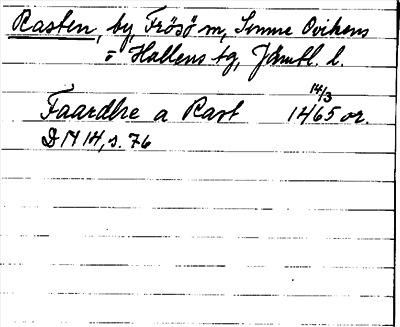 Rasten, by, Frösö m, Sunne Ovikens
o Hallens tg, Jämtl. l.
14/3
Faardhe a Rast 1465 or.
DN 14, s. 76